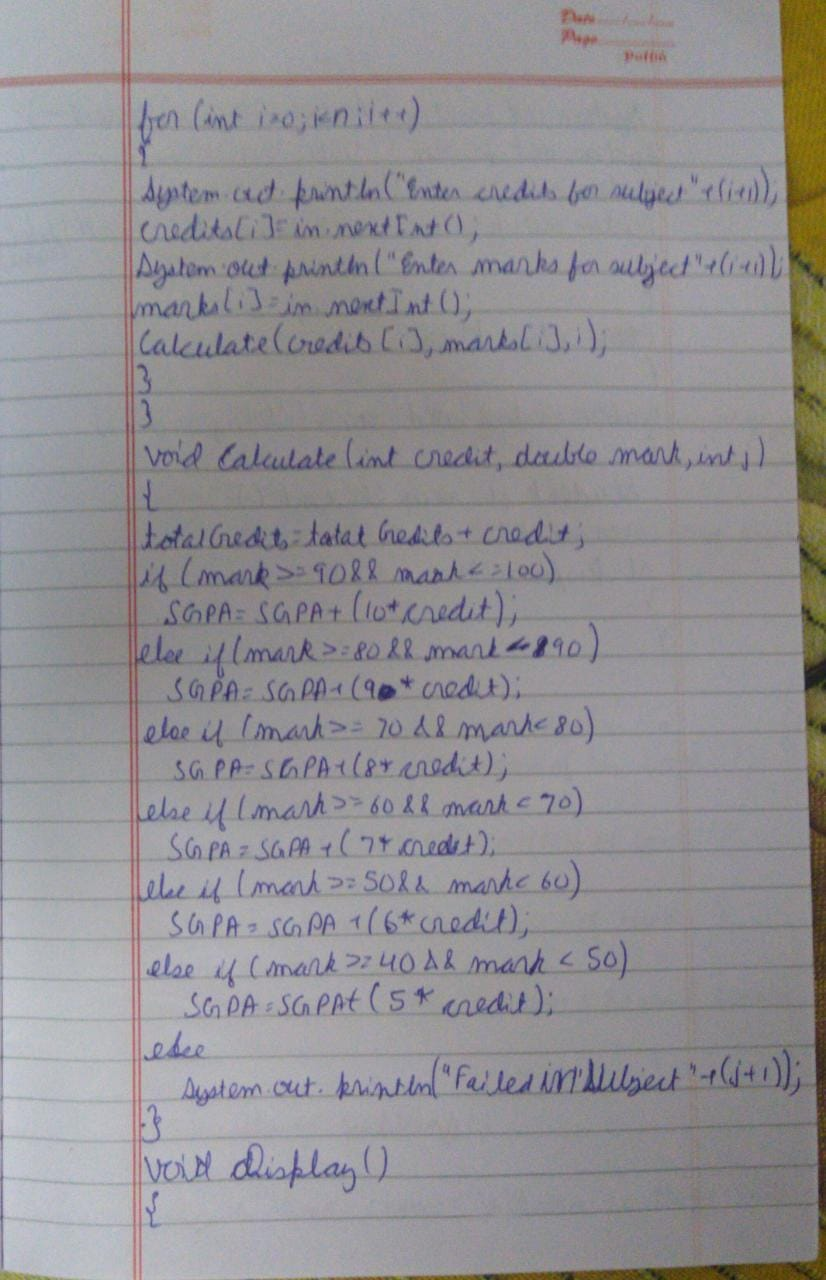 Date...../...../.....
Page
for (int i=0;i<n;i++)
{
System.out.println("Enter credits for subject"+(i+1));
credits[i]=in.nextInt();
System.out.println("Enter marks for subject"+(i+1));
marks[i]=in.nextInt();
Calculate(credits[i], marks[i],i);
}
}
void Calculate(int credit, double mark, int j)
{
totalCredits=totalCredits+credit;
if (mark>=90&& mark<=100)
SGPA=SGPA+(10*credit);
else if(mark>=80&& mark<90)
SGPA=SGPA+(9*credit);
else if (mark>=70&& mark<80)
SGPA=SGPA+(8*credit);
else if (mark>=60&& mark<70)
SGPA=SGPA+(7*credit);
else if (mark>=50&& mark<60)
SGPA=SGPA+(6*credit);
else if (mark>=40&& mark<50)
SGPA=SGPA+(5*credit);
else
System.out.println("Failed in Subject"+(j+1));
}
void Display()
{